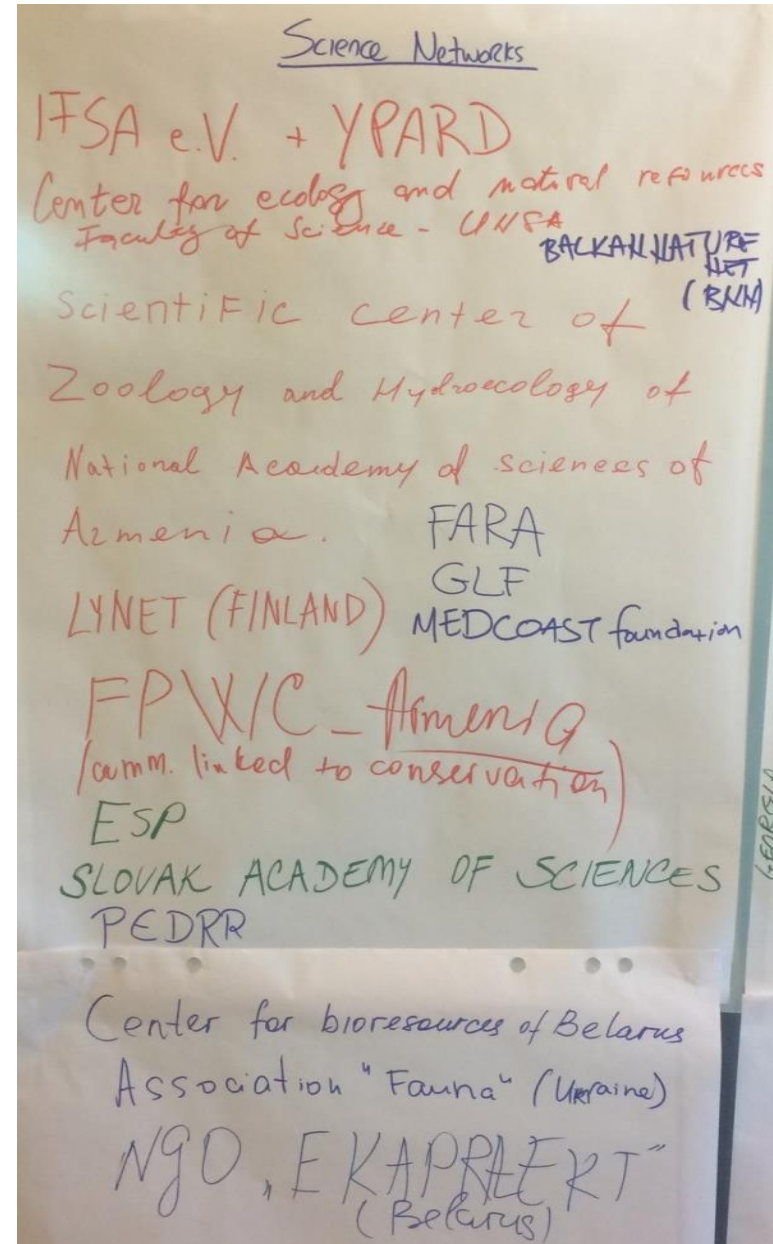 Science Networks
IFSA e.V. + YPARD
Center for ecology and natural resources
Faculty of Science - UNSA
BALKAN NATURE
NET
(BNN)
Scientific center of
Zoology and Hydroecology of
National Academy of sciences of
Armenia.
FARA
GLF
LYNET (FINLAND)
MEDCOAST foundation
FPWC - Armenia
(comm. linked to conservation)
ESP
SLOVAK ACADEMY OF SCIENCES
PEDRR
Center for bioresources of Belarus
Association "Fauna" (Ukraine)
NGO „EKAPRAEKT"
(Belarus)
GEORGIA